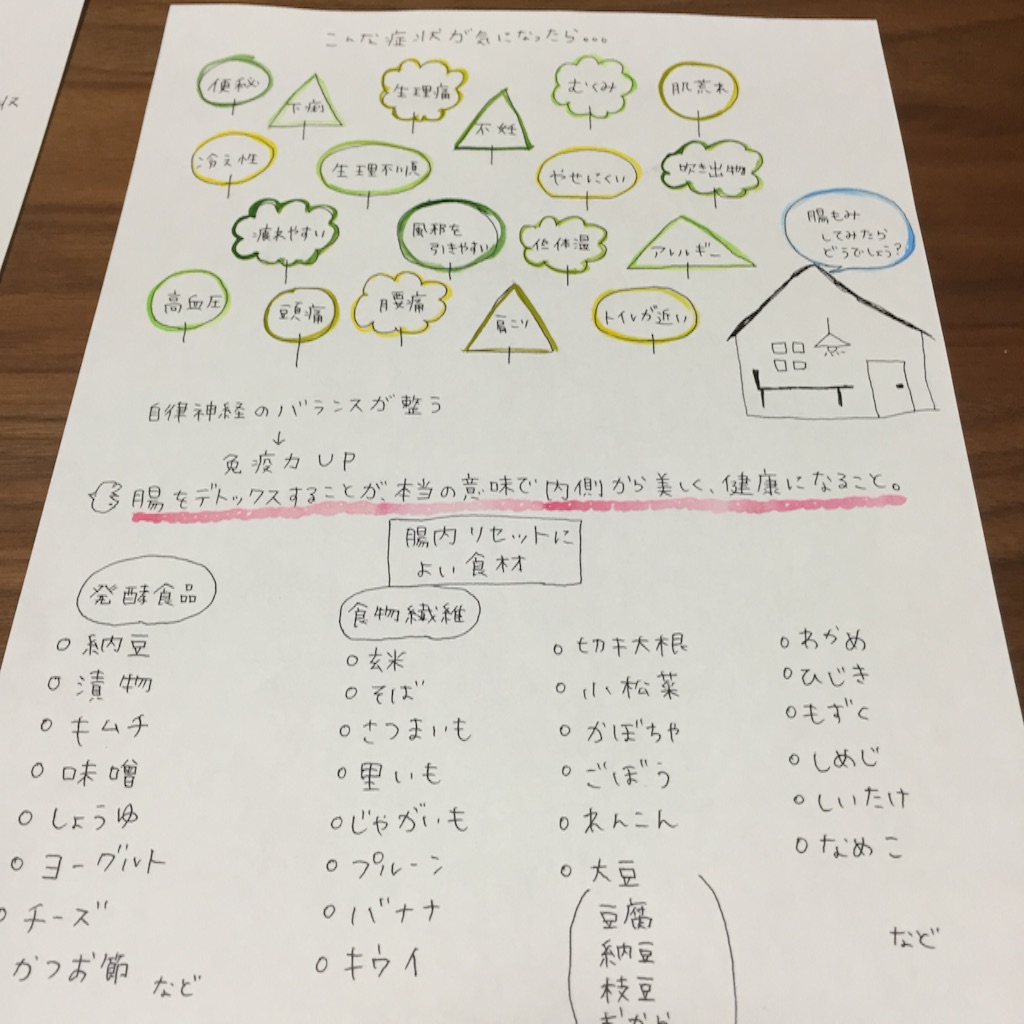 こんな症状が気になったら...
便秘
下痢
生理痛
不妊
むくみ
肌荒れ
冷え性
生理不順
やせにくい
吹き出物
疲れやすい
風邪を
引きやすい
低体温
アレルギー
腸もみ
してみたら
どうでしょう?
高血圧
頭痛
腰痛
肩こり
トイレが近い
自律神経のバランスが整う
↓
免疫力UP
腸をデトックスすることが、本当の意味で内側から美しく、健康になること。
腸内リセットに
よい食材
発酵食品
○納豆
○漬物
○キムチ
○味噌
○しょうゆ
○ヨーグルト
○チーズ
かつお節
など
食物繊維
○玄米
○そば
○さつまいも
○里いも
○じゃがいも
○プルーン
○バナナ
○キウイ
○切キ大根
○小松菜
○かぼちゃ
○ごぼう
○れんこん
○大豆
豆腐
納豆
枝豆
○わかめ
○ひじき
○もずく
○しめじ
○しいたけ
○なめこ
など